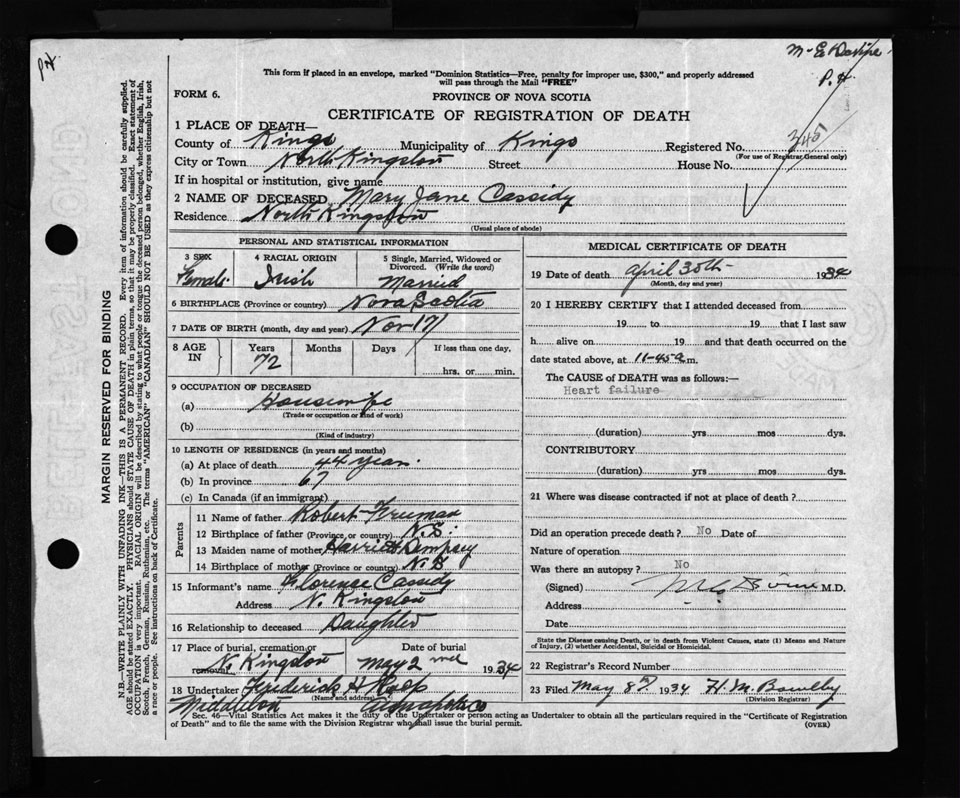 This form if placed in an envelope, marked "Dominion Statistics—Free, penalty for improper use, $300," and properly addressed
will pass through the Mail "FREE"
FORM 6.
PROVINCE OF NOVA SCOTIA
CERTIFICATE OF REGISTRATION OF DEATH
1 PLACE OF DEATH—
County of Kings Municipality of Kings Registered No. 345
(For use of Registrar General only)
City or Town North Kingston Street House No.
If in hospital or institution, give name
2 NAME OF DECEASED Mary Jane Cassidy
Residence North Kingston
(Usual place of abode)
PERSONAL AND STATISTICAL INFORMATION
3 SEX Female
4 RACIAL ORIGIN Irish
5 Single, Married, Widowed or Divorced. (Write the word) Married
6 BIRTHPLACE (Province or country) Nova Scotia
7 DATE OF BIRTH (month, day and year) Nov 17
8 AGE IN Years 72 Months Days If less than one day, hrs. or min.
9 OCCUPATION OF DECEASED
(a) Housewife
(Trade or occupation or kind of work)
(b)
(Kind of industry)
10 LENGTH OF RESIDENCE (in years and months)
(a) At place of death 44 year
(b) In province 67
(c) In Canada (if an immigrant)
Parents
11 Name of father Robert Freeman
12 Birthplace of father (Province or country) N.S.
13 Maiden name of mother Harriet Dempsey
14 Birthplace of mother (Province or country) N.S
15 Informant's name Florence Cassidy
Address N. Kingston
16 Relationship to deceased Daughter
17 Place of burial, cremation or removal N. Kingston
Date of burial May 2nd 1934
18 Undertaker Frederick H Roop
(Name and address)
Middleton Annapolis Co
MEDICAL CERTIFICATE OF DEATH
19 Date of death April 30th 1934
(Month, day and year)
20 I HEREBY CERTIFY that I attended deceased from
19 to 19 that I last saw
h alive on 19 and that death occurred on the
date stated above, at 11-45 a m.
The CAUSE of DEATH was as follows:—
Heart failure
(duration) yrs mos dys.
CONTRIBUTORY
(duration) yrs mos dys.
21 Where was disease contracted if not at place of death?
Did an operation precede death? No Date of
Nature of operation
Was there an autopsy? No
(Signed) M.D.
Address
Date
State the Disease causing Death, or in death from Violent Causes, state (1) Means and Nature
of Injury, (2) whether Accidental, Suicidal or Homicidal.
22 Registrar's Record Number
23 Filed May 8th 1934 H. M.
(Division Registrar)
Sec. 46—Vital Statistics Act makes it the duty of the Undertaker or person acting as Undertaker to obtain all the particulars required in the "Certificate of Registration
of Death" and to file the same with the Division Registrar who shall issue the burial permit.
(OVER)
MARGIN RESERVED FOR BINDING
N.B.—WRITE PLAINLY WITH UNFADING INK—THIS IS A PERMANENT RECORD. Every item of information should be carefully supplied.
AGE should be stated EXACTLY. PHYSICIANS should STATE CAUSE OF DEATH in plain terms, so that it may be properly classified. Exact statement of
OCCUPATION is very important. RACIAL ORIGIN will be described by stating to what people or tongue the deceased person belonged, whether English, Irish,
Scotch, French, German, Russian, Ruthenian, etc. The terms "AMERICAN" or "CANADIAN" SHOULD NOT BE USED as they express citizenship but not
a race or people. See instructions on back of Certificate.